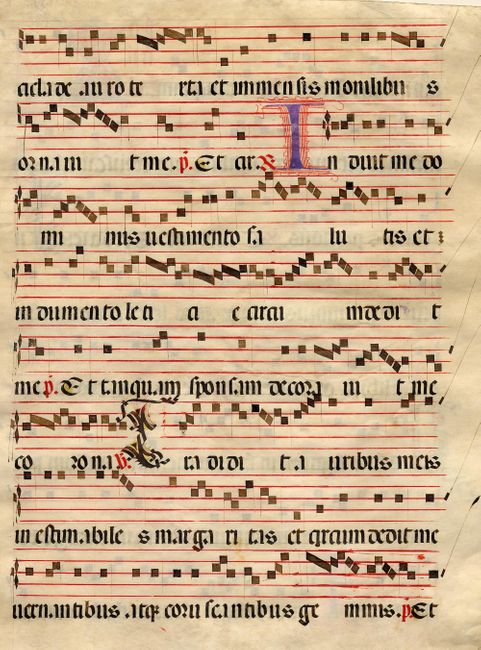 cicla de auro te xta et immensis monilibu s
ornaui t me. p. Et cir. R I n duit me do
mi nus uestimento sa lu tis et
in dumento leti ci e circu mdedi t
me p. Et tanquam sponsam decora ui t me
co rona. V. Tra di di t a uribus meis
in estimabile s marga ri tas et circundedit me
uernantibus atq; corruscantibus ge mmis. p. Et